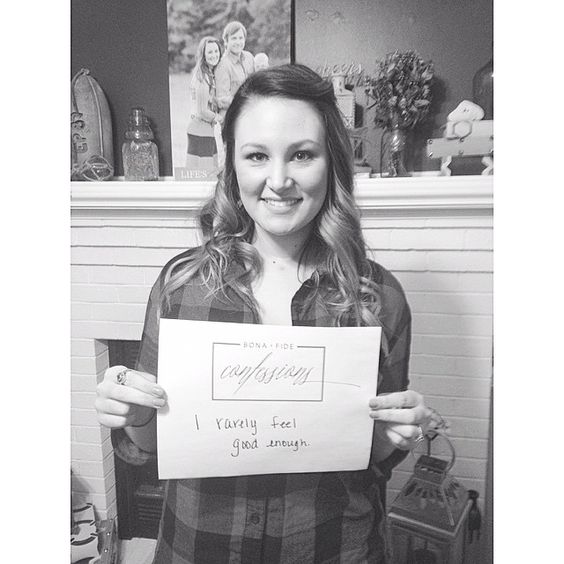 LIFE'S
BONA + FIDE
confessions
I rarely feel
good enough.